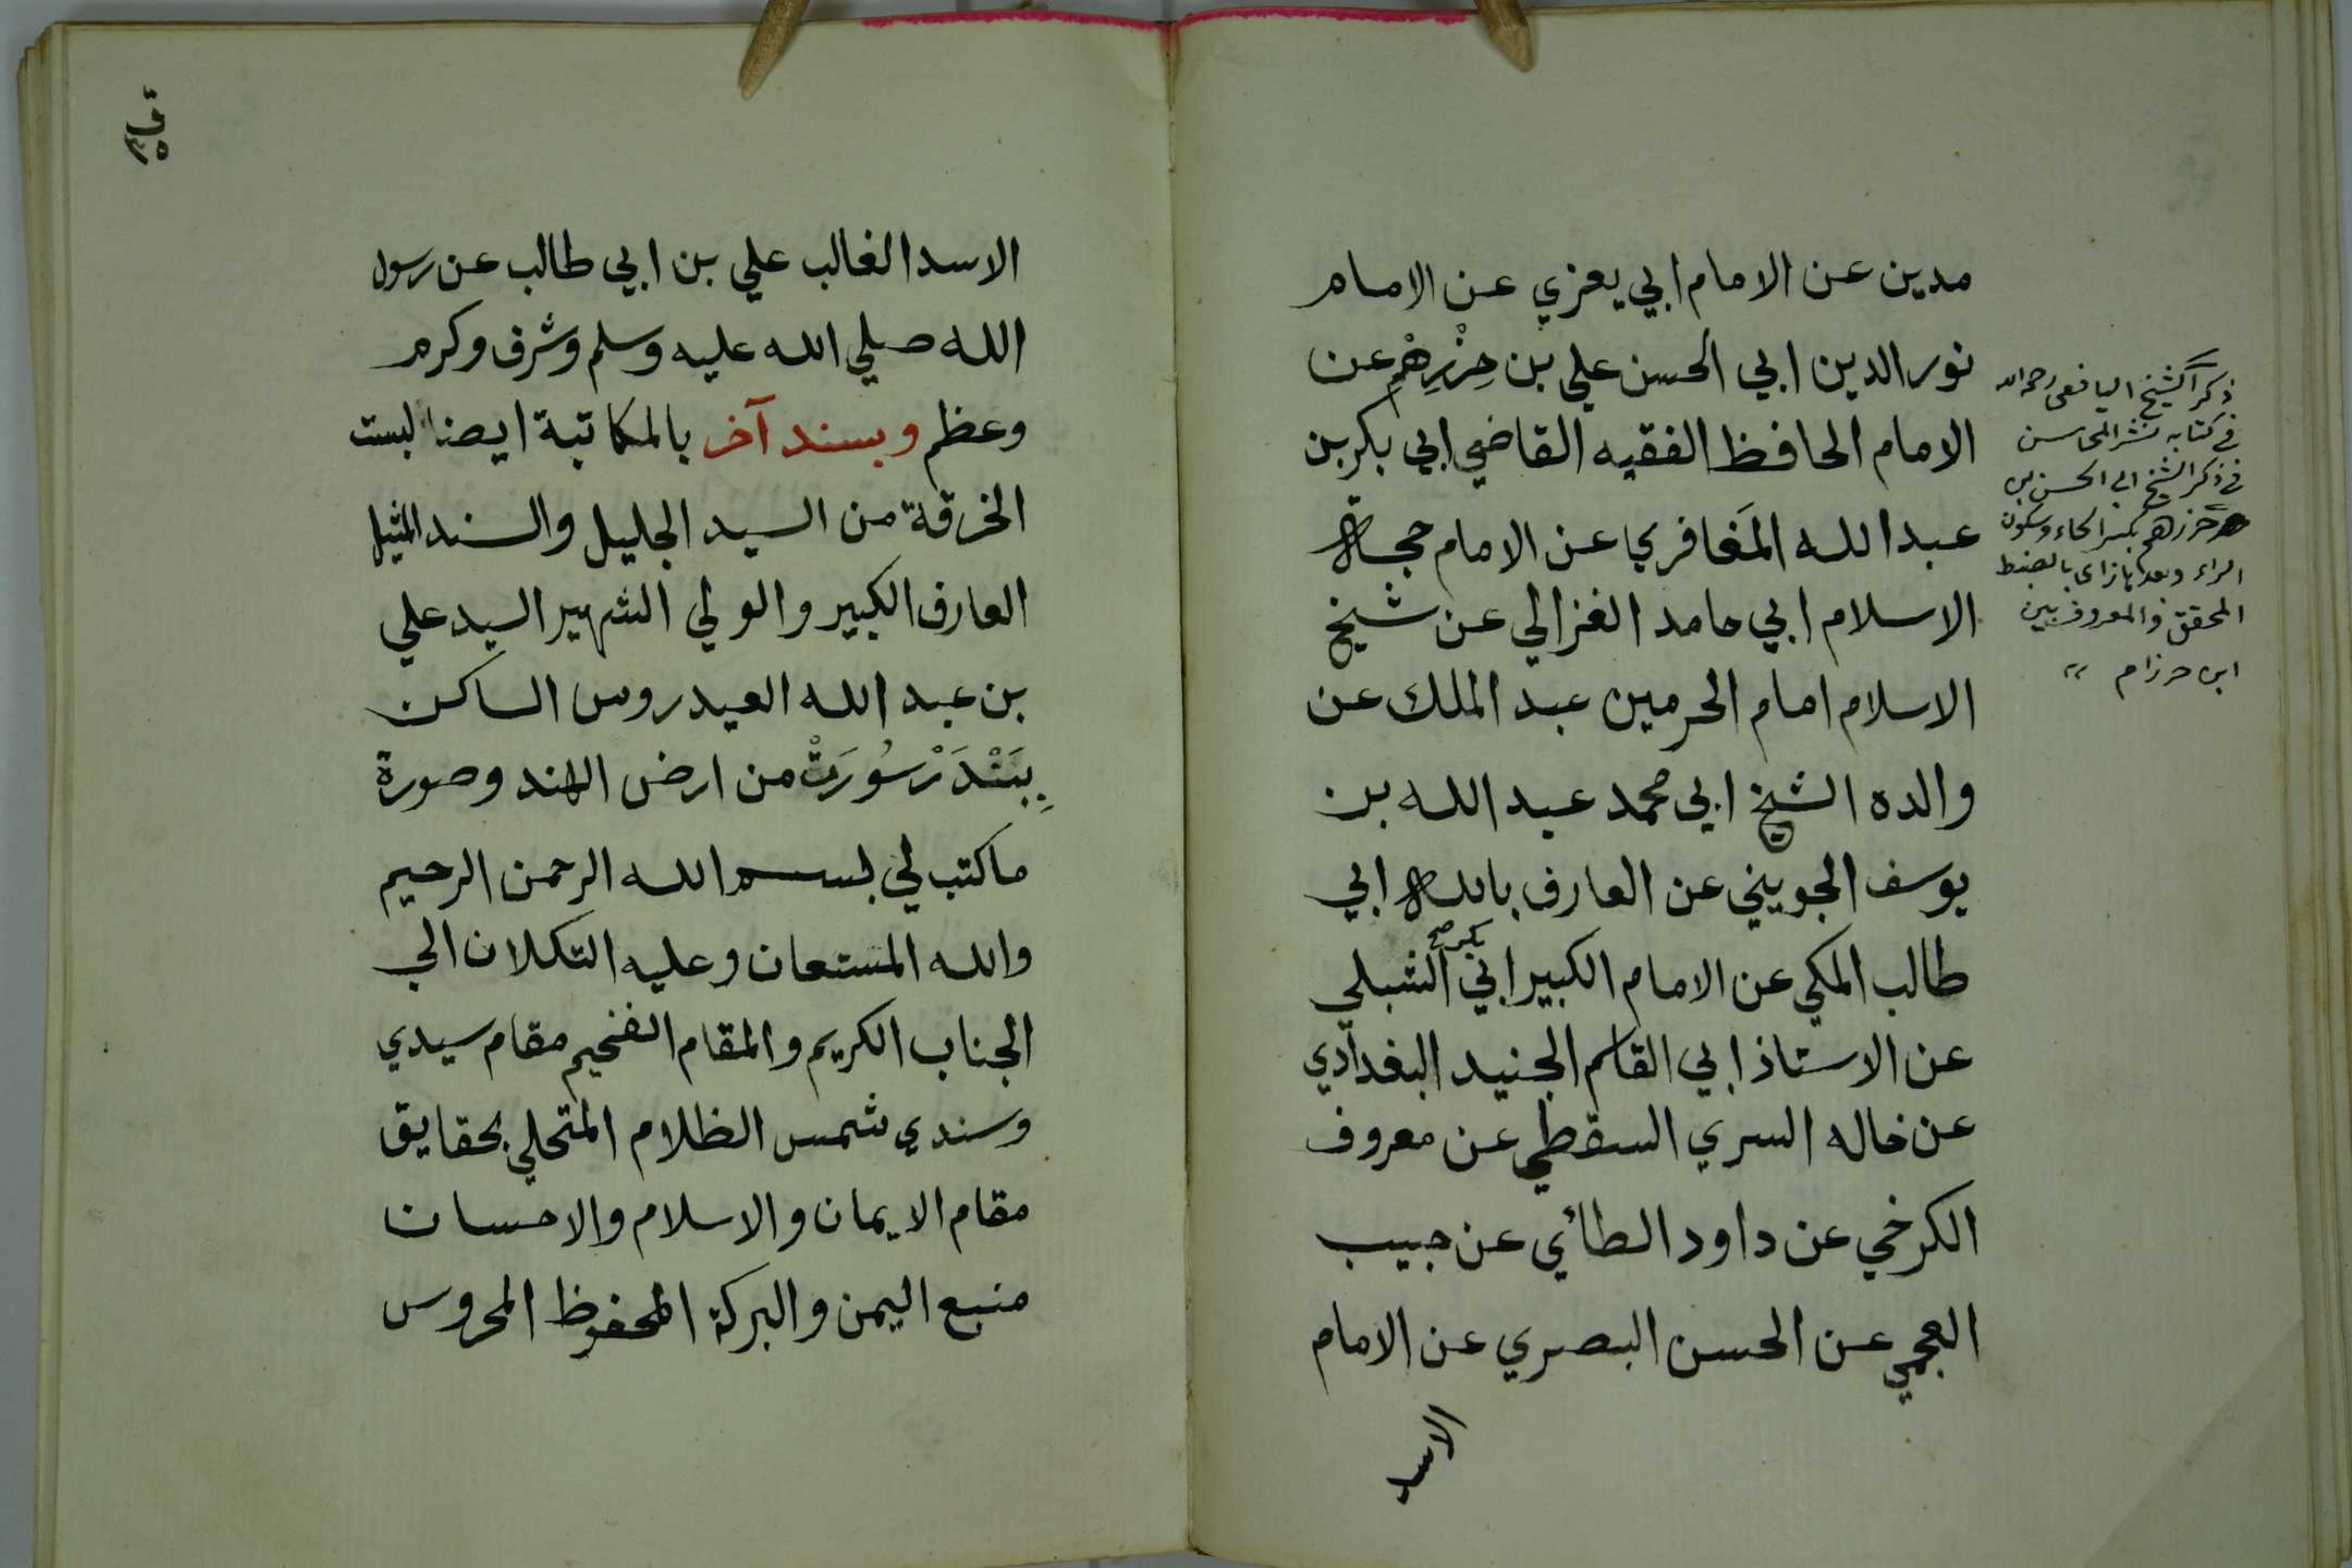 مدين عن الامام ابي يعزي عن الامام
نور الدين ابي الحسن علي بن حِزْرِهْم عن
الامام الحافظ الفقيه القاضي ابي بكر بن
عبد الله المَغافري عن الامام حجة
الاسلام ابي حامد الغزالي عن شيخ
الاسلام امام الحرمين عبد الملك عن
والده الشيخ ابي محمد عبد الله بن
يوسف الجويني عن العارف بالله ابي
طالب المكي عن الامام الكبير ابي بكر صح الشبلي
عن الاستاذ ابي القاسم الجنيد البغدادي
عن خاله السري السقطي عن معروف
الكرخي عن داود الطائي عن حبيب
العجمي عن الحسن البصري عن الامام
الاسد
ذكر الشيخ اليافعي رحمه الله
في كتابه نشر المحاسن
في ذكر الشيخ ابي الحسن بن
حرزهم بكسر الحاء وسكون
الراء وبعدها زاى بالضبط
المحقق والمعروف بين
ابن حرزام
الاسد الغالب علي بن ابي طالب عن رسول
الله صلي الله عليه وسلم وشرف وكرم
وعظم وبسند آخر بالمكاتبة ايضا لبست
الخرقة من السيد الجليل والسند المثيل
العارف الكبير والولي الشهير السيد علي
بن عبد الله العيدروس الساكن
بِبَنْدَرْ سُورَتْ من ارض الهند وصورة
ما كتب لي بسم الله الرحمن الرحيم
والله المستعان وعليه التكلان الي
الجناب الكريم والمقام الفخيم مقام سيدي
وسندي شمس الظلام المتحلي بحقايق
مقام الايمان والاسلام والاحسان
منبع اليمن والبركة المحفوظ المحروس